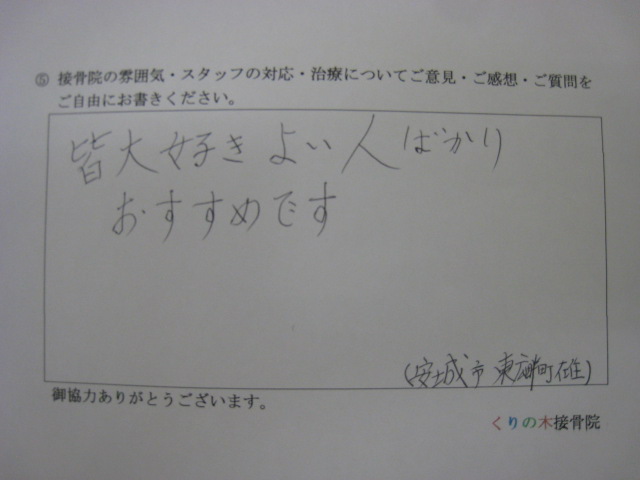 ⑤ 接骨院の雰囲気・スタッフの対応・治療についてご意見・ご感想・ご質問を
ご自由にお書きください。
皆大好きよい人ばかり
おすすめです
(安城市 東栄町在住)
御協力ありがとうございます。
くりの木接骨院